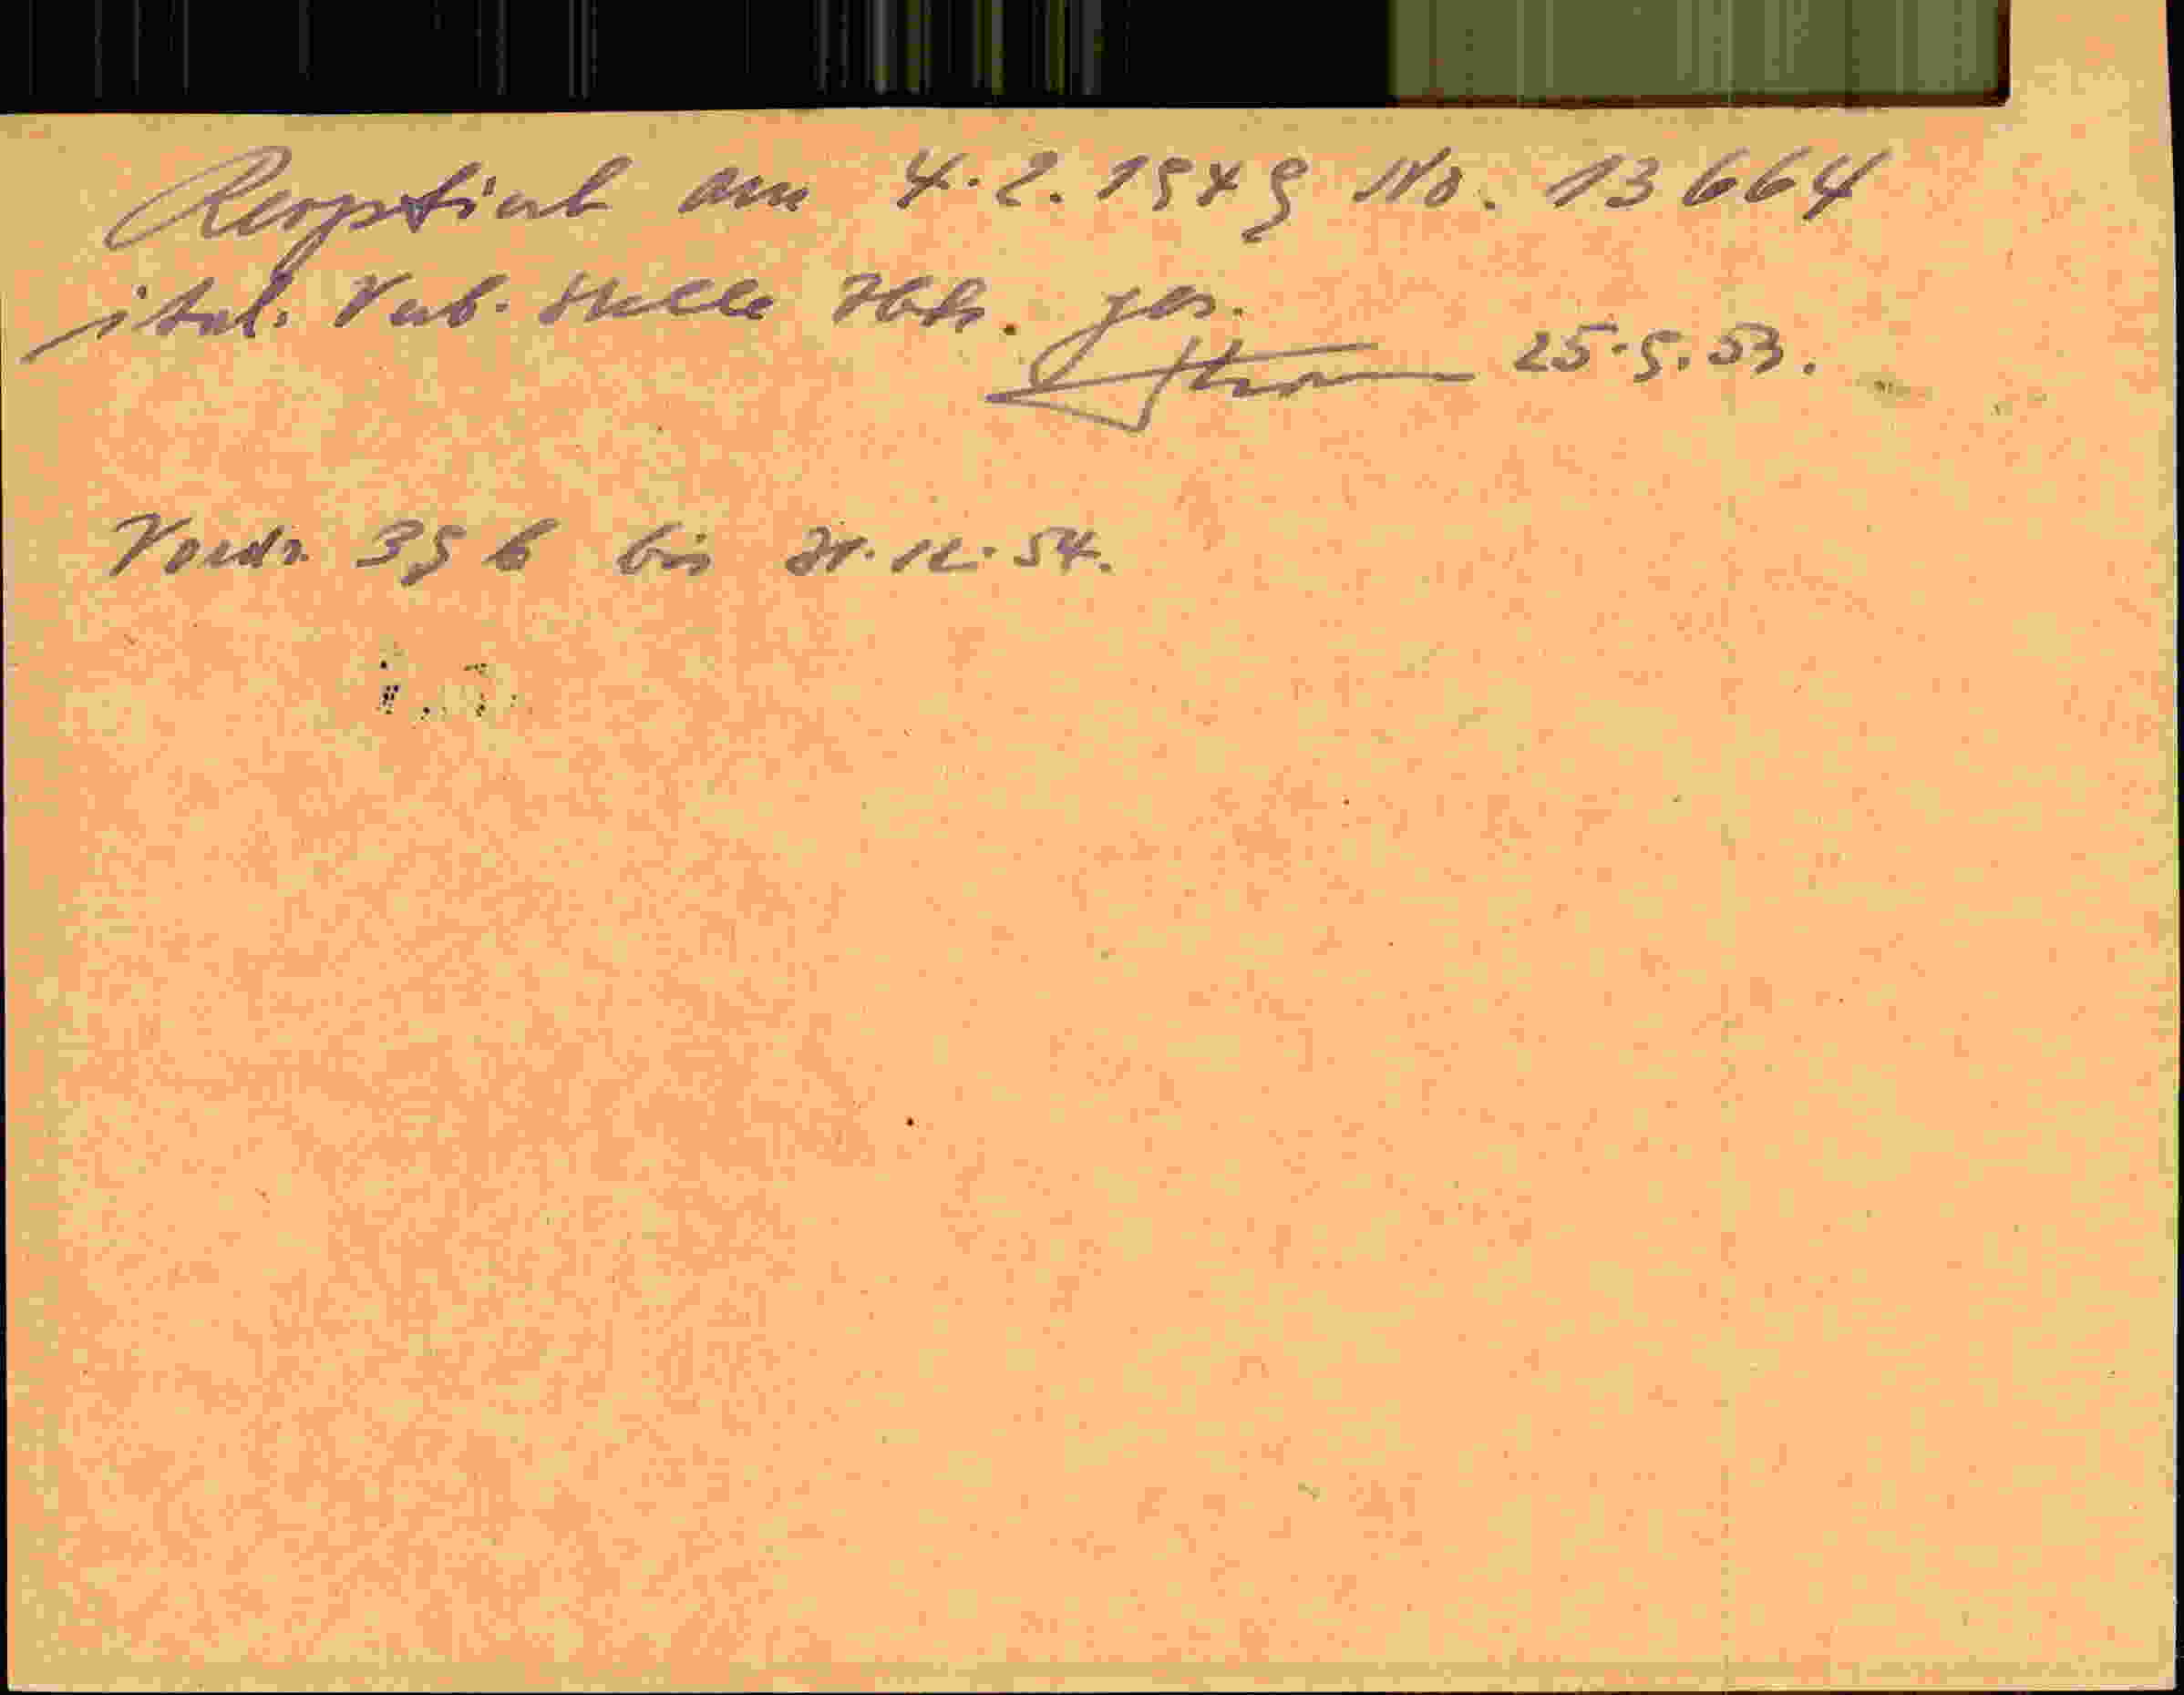 Reoptiert am 4.2.1949 No. 13664
ital. Verb. Stelle Ibk. ges.
25.9.53.
Vordr. 39 b bis 31.12.54.